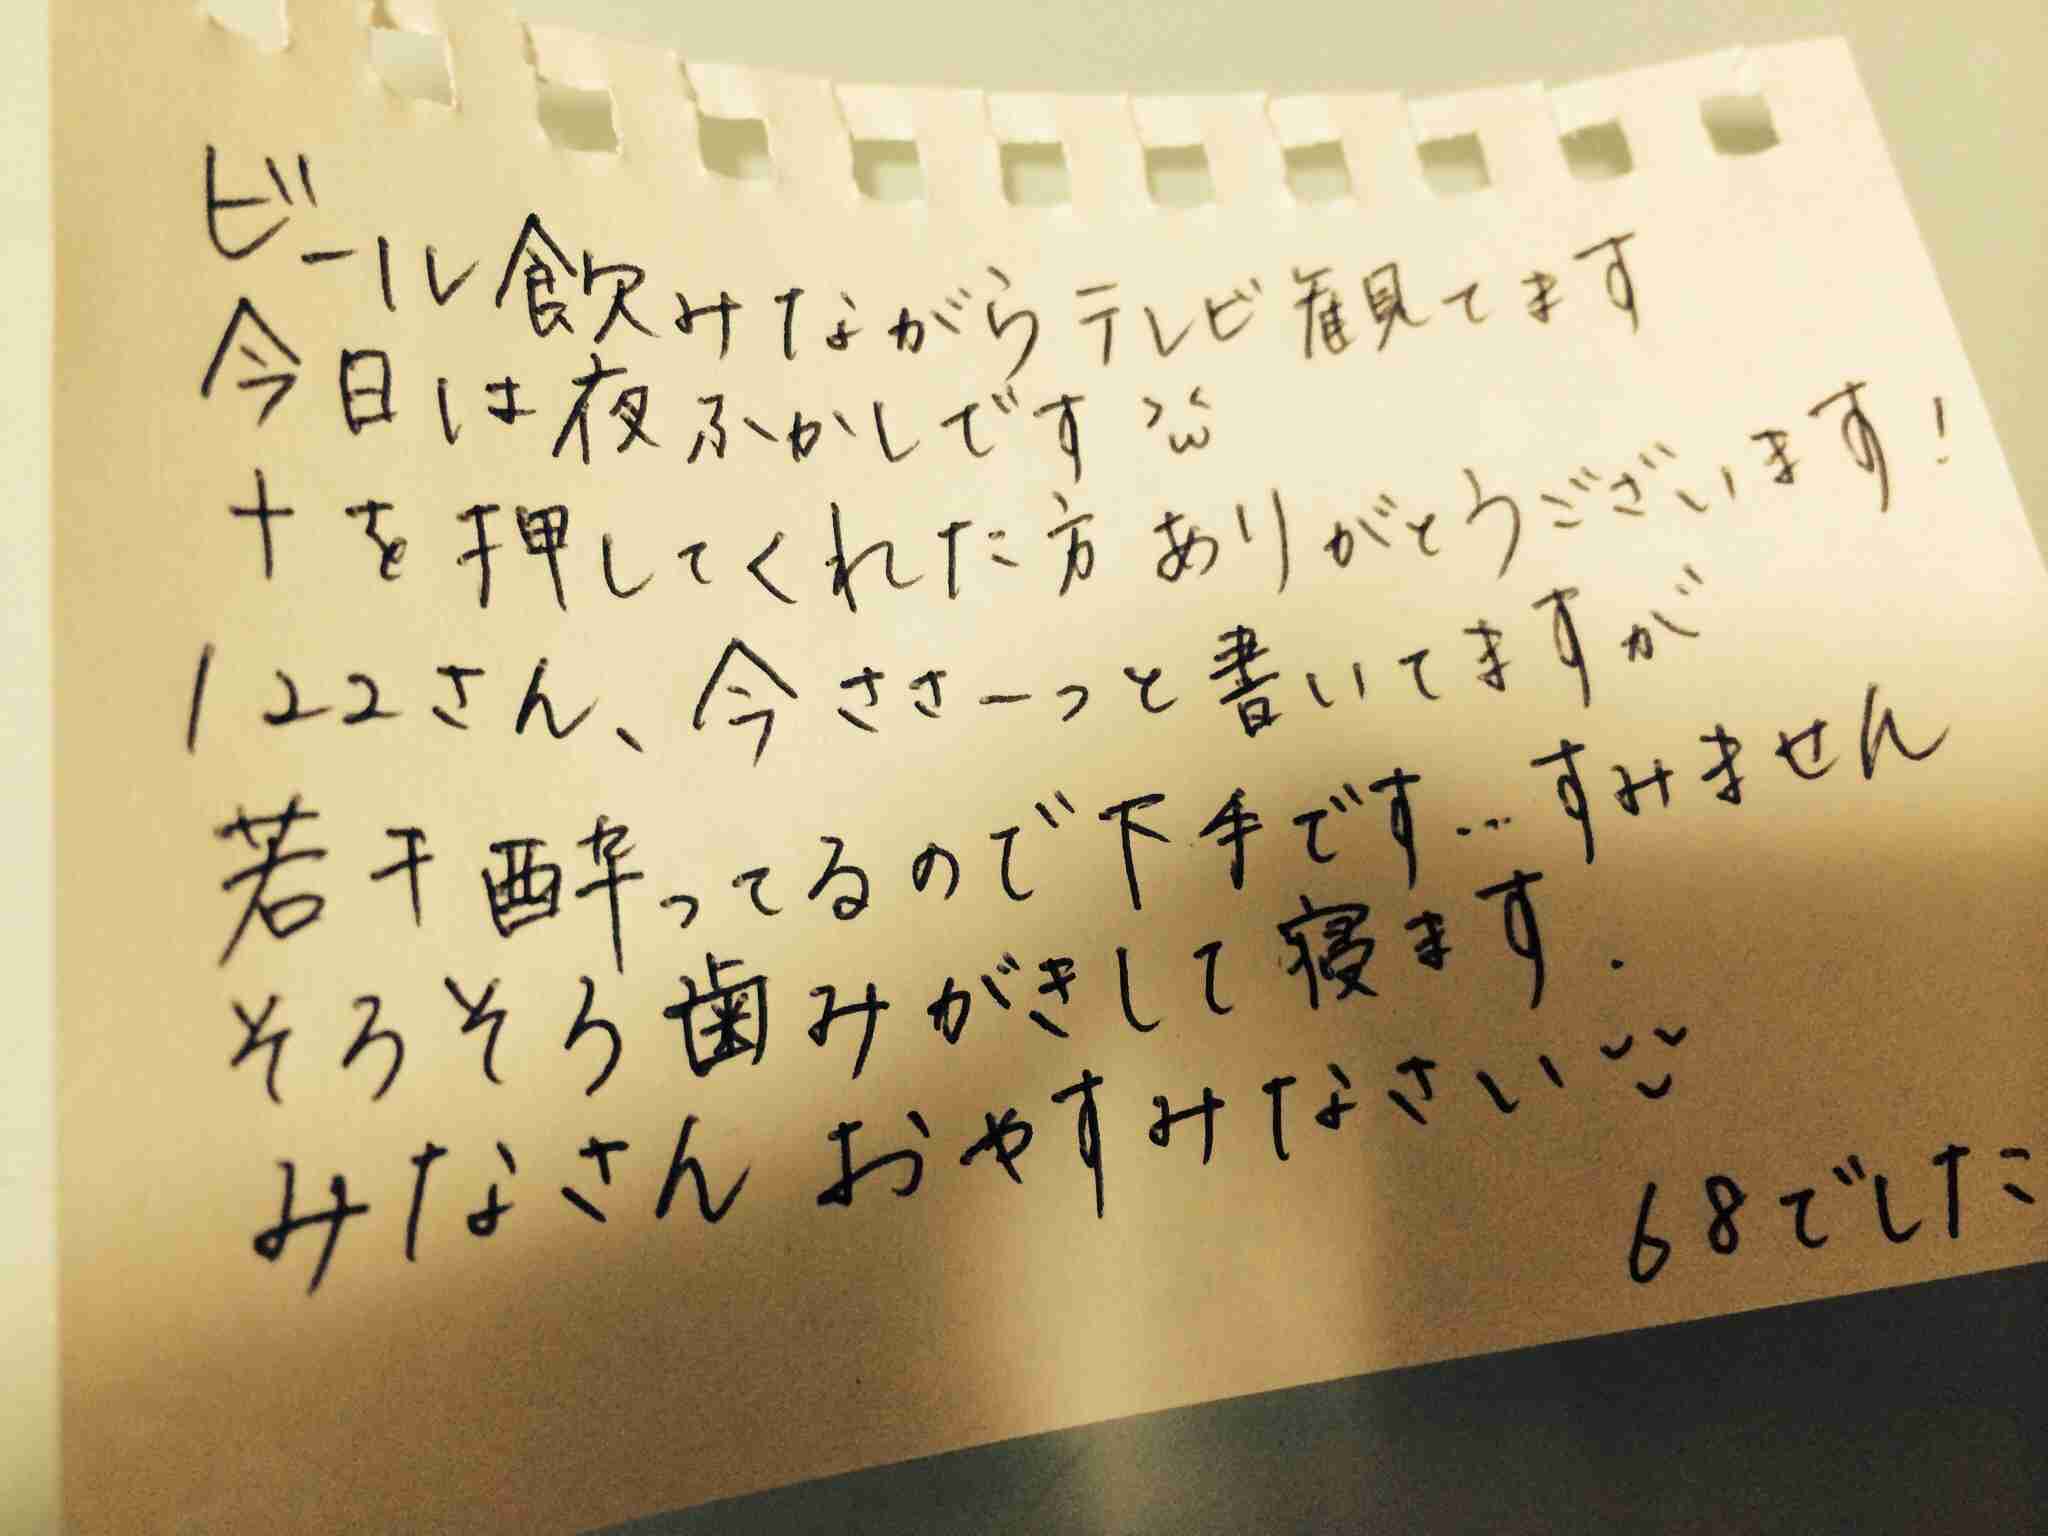 ビール飲みながらテレビ観てます
今日は夜ふかしです ˃ω˂
+を押してくれた方ありがとうございます!
122さん、今ささーっと書いてますが
若干酔ってるので下手です…すみません
そろそろ歯みがきして寝ます.
みなさんおやすみなさい
68でした